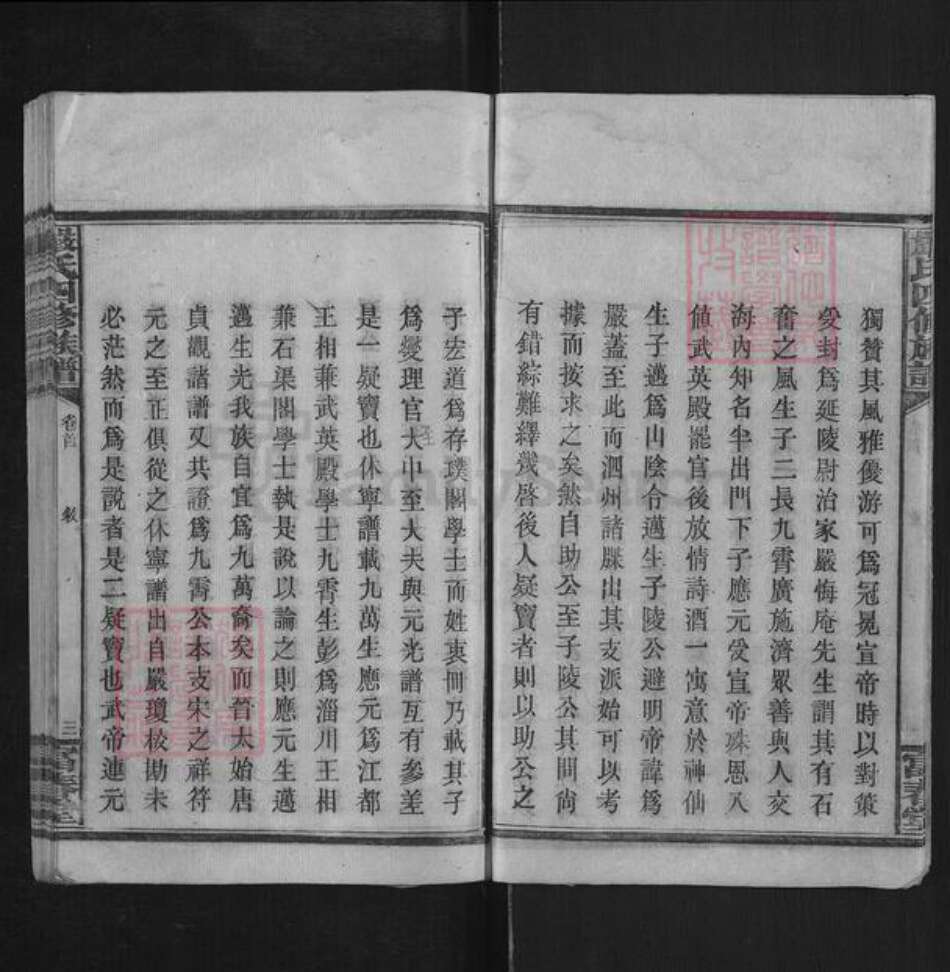 獨贊其風雅優游可爲冠冕宣帝時以對策
受封爲延陵尉治家嚴悔庵先生謂其有石
奮之風生子二長九霄廣施濟眾善與人交
海內知名半出門下子應元受宣帝殊恩入
値武英殿罷官後放情詩酒一寓意於神仙
生子邁爲山陰令邁生子陵公避明帝諱爲
嚴蓋至此而泗州諸牒出其支派始可以考
據而按求之矣然自助公至子陵公其間尙
有錯綜難繹幾啓後人疑竇者則以助公之
子宏道爲存璞閣學士而姓衷冊乃載其子
爲燮理官大中至大夫與元光譜互有參差
是一疑竇也休寧譜載九萬生應元爲江都
王相兼武英殿學士九霄生彭爲淄川王相
兼石渠閣學士執是說以論之則應元生邁
邁生光我族自宜爲九萬裔矣而晉太始唐
貞觀諸譜又共證爲九霄公本支宋之祥符
元之至正俱從之休寧譜出自嚴瓊校勘未
必茫然而爲是說者是二疑竇也武帝連元
嚴氏四修族譜
卷首
敘
三
富春堂
嚴氏四修族譜
富春堂
FamilySearch